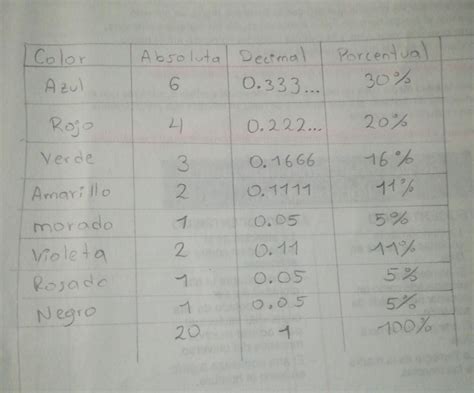 Color Absoluta Decimal Porcentual
Azul 6 0.333... 30%
Rojo 4 0.222... 20%
Verde 3 0.1666 16%
Amarillo 2 0.1111 11%
morado 1 0.05 5%
Violeta 2 0.11 11%
Rosado 1 0.05 5%
Negro 1 0.05 5%
20 1 100%